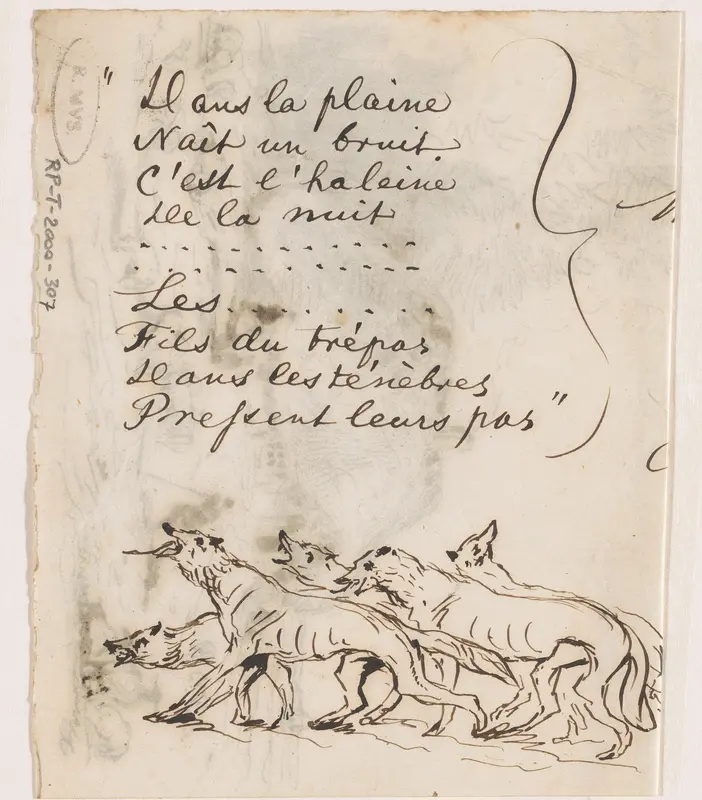 " Dans la plaine
Naît un bruit
C'est l'haleine
De la nuit
. . . . . . . . . . . .
. . . . . . . . . . . .
Les . . . . . . . .
Fils du trépas
Dans les ténèbres
Pressent leurs pas "
RP-T-2000-307